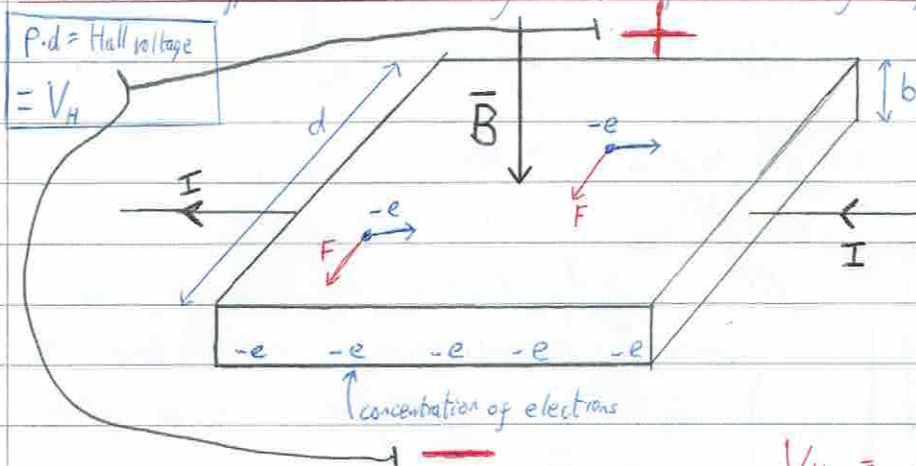 p.d = Hall voltage
= V_H
+
d
B̅
b
-e
F
I
-e
F
I
-e -e -e -e -e
concentration of electrons
−
V_H =